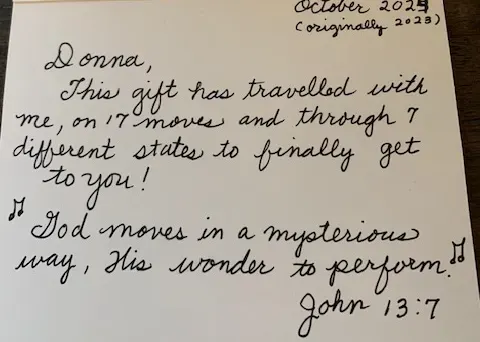 October 2024
(originally 2023)
Donna,
This gift has travelled with
me, on 17 moves and through 7
different states to finally get
to you!
God moves in a mysterious
way, His wonder to perform.
John 13:7